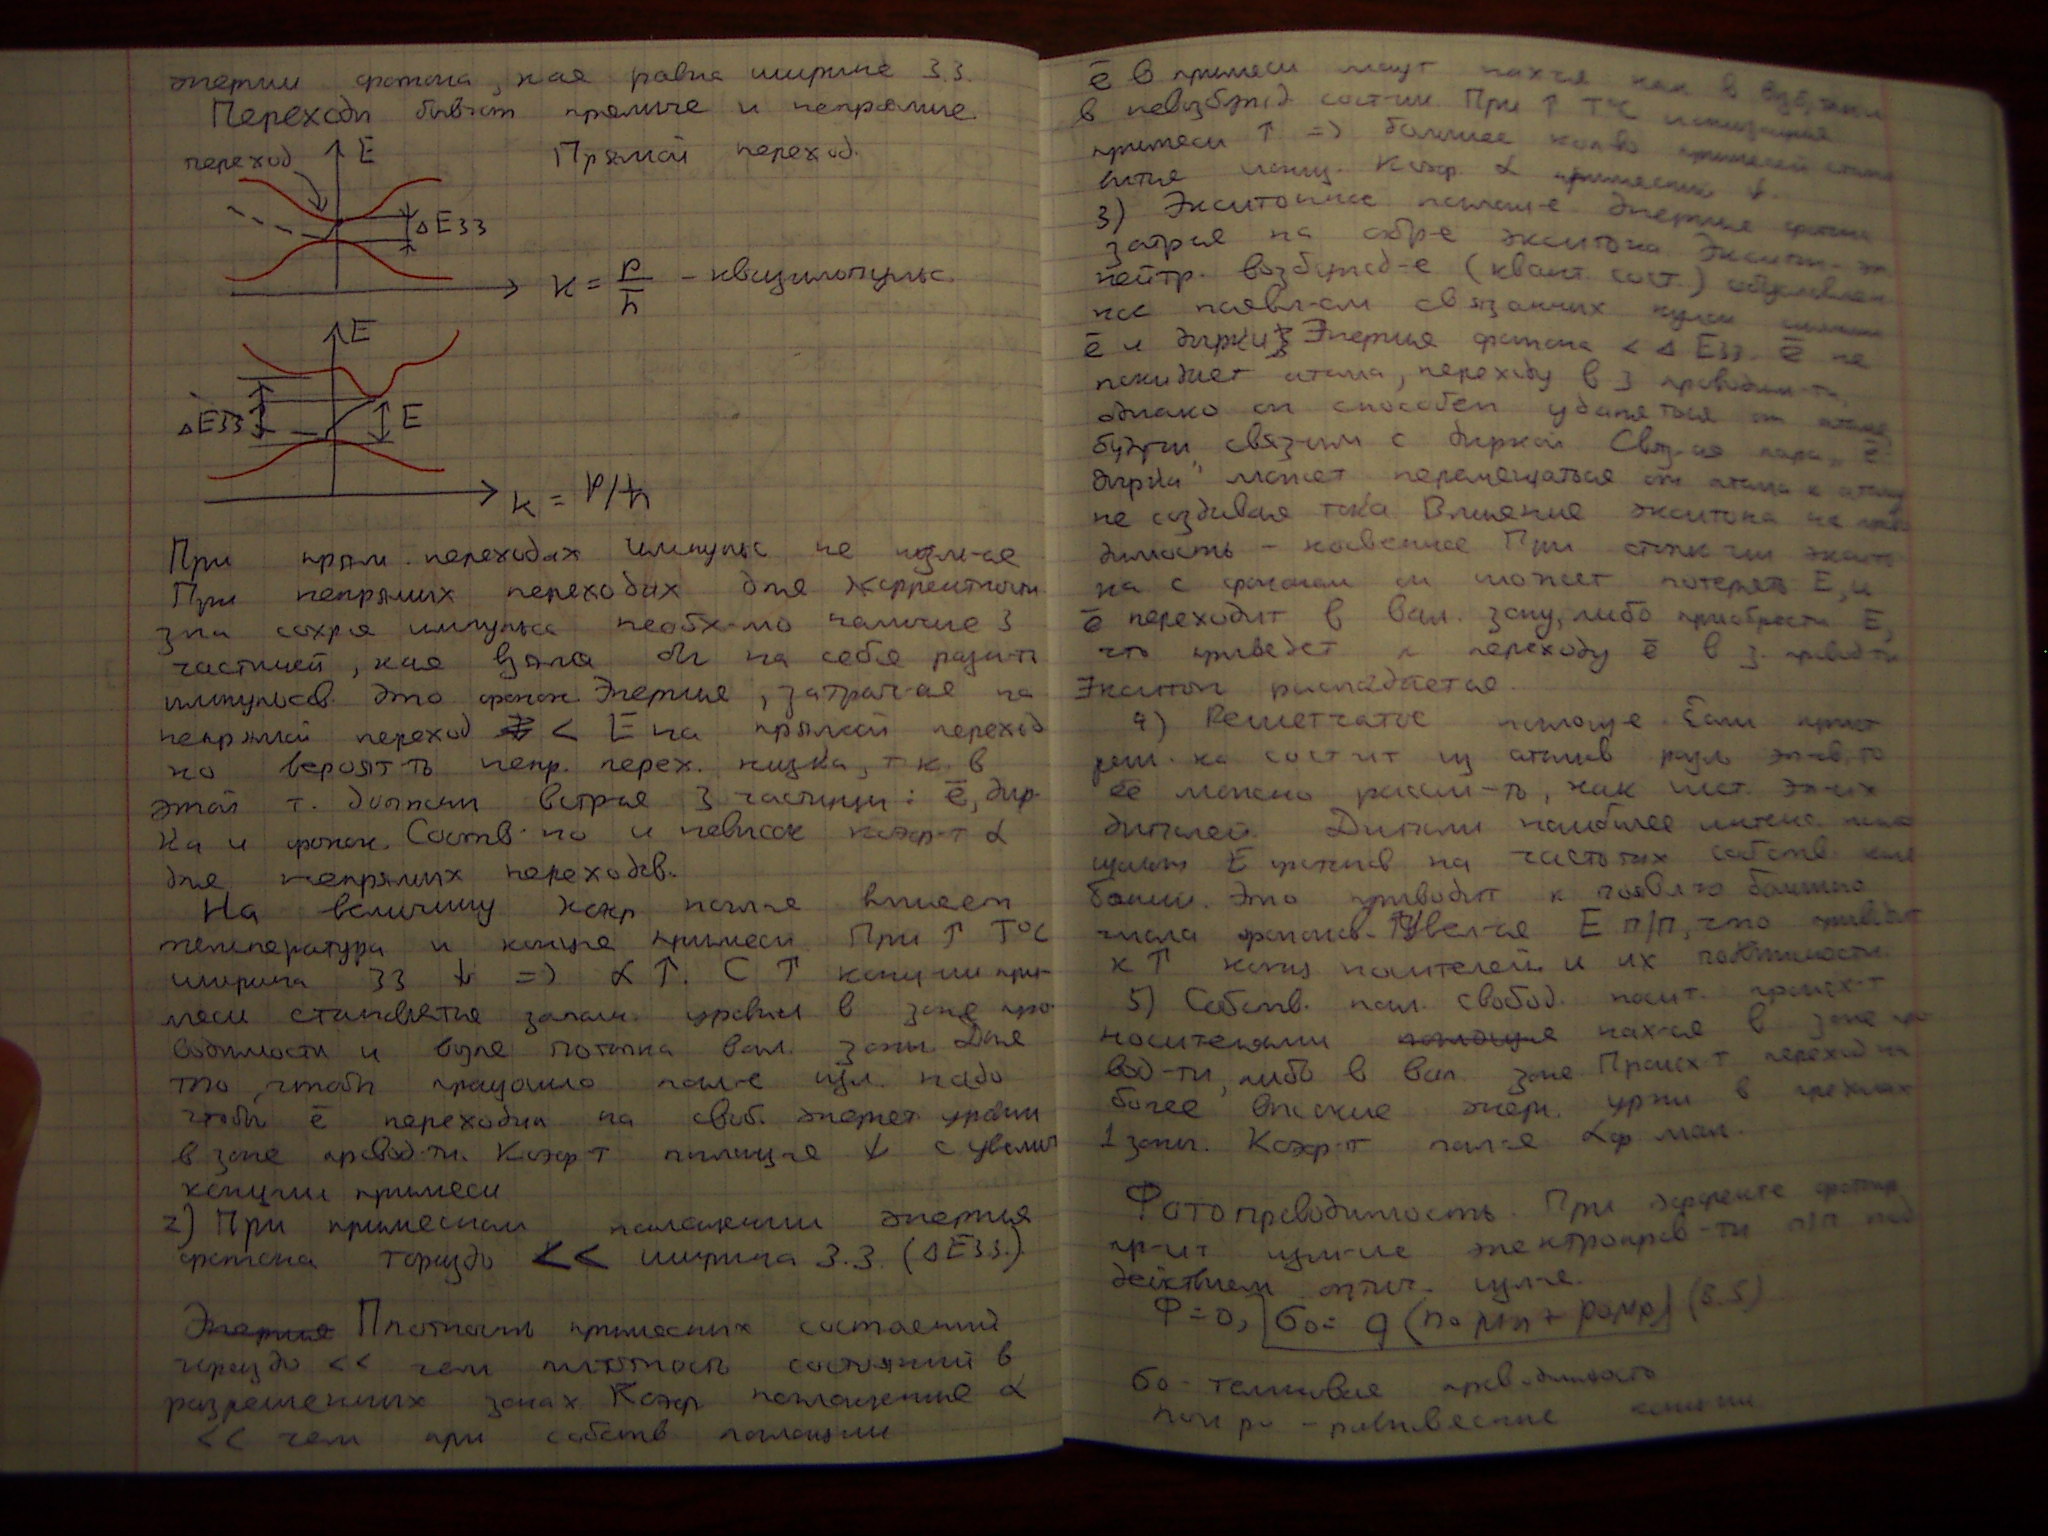 энергии фотона, кая равна ширине З.З.
Переходы бывают прямые и непрямые.
переход E Прямой переход.
ΔEзз
k = p/ħ – квазиимпульс.
E
ΔEзз E
k = p/ħ
При прям. переходах импульс не изм-ся
При непрямых переходах для
з-на сохр-я импульса необх-мо наличие 3
частицей, кая взяла бы на себя разн-ть
импульсов. Это фонон. Энергия, затрач-ая на
непрямой переход < E на прямой переход
но вероят-ть непр. перех. низка, т.к. в
этой т. должны встр-ся 3 частицы: ē, дыр-
ка и фонон. Соотв-но и невысок коэф-т α
для непрямых переходов.
На величину коэф погл-я влияет
температура и конц-я примеси. При ↑ T°C
ширина ЗЗ ↓ => α↑. С ↑ конц-ии при-
меси становятся заполн. уровни в зоне про-
водимости и возле потолка вал. зоны. Для
того, чтобы произошло погл-е изл. надо
чтобы ē переходил на своб. энергет. уровни
в зоне провод-ти. Коэф-т поглощ-я ↓ с увелич
конц-ии примеси
2) При примесном поглощении энергия
фотона гораздо << ширина З.З. (ΔEзз.)
Плотность примесных состояний
гораздо << чем плотность состояний в
разрешенных зонах Коэф поглощения α
<< чем при собств поглощении
ē в примеси могут нах-ся как в возб, так и
в невозбужд сост-ии. При ↑ T°C ионизация
примеси ↑ => большее кол-во примесей
Коэф α примесный ↓.
3) Экситонное поглощ-е. Энергия фотона
затр-ся на обр-е экситона. Экситон – это
нейтр. возбужд-е (квант. сост.)
ное появл-ем связанных кулон. силами
ē и дырки. Энергия фотона < ΔEзз. ē не
покидает атома, переходу в з. проводим-ти,
однако он способен удаляться от атома,
будучи связ-ым с дыркой. Связ-ая пара „ē
дырка" может перемещаться от атома к атому
не создавая тока. Влияние экситона на прово
димость – косвенное. При столк-ии эксито
на с фононом он может потерять E, и
ē переходит в вал. зону, либо приобрести E,
что приведет к переходу ē в з. провод-ти
Экситон распадается.
4) Решетчатое поглощ-е. Если крист
реш-ка состоит из атомов разл эл-ов, то
ее можно рассм-ть, как сист. эл-их
диполей. Диполи наиболее интенс. погло
щают E фотонов на частотах собств. коле
баний. Это приводит к появл-ю большого
числа фононов. Увел-ся E п/п, что приводит
к ↑ конц носителей и их подвижности.
5) Собств. погл. свобод. носит. происх-т
носителями нах-ся в зоне про
вод-ти, либо в вал зоне. Происх-т переход на
более высокие энерг. ур-ни в пределах
1 зоны. Коэф-т погл-я αф мал.
Фотопроводимость. При эффекте фотопр
пр-ит изм-ие электропров-ти п/п под
действием оптич. изл-я.
Ф=0, σ0= q(n0 μn + p0 μp) (3.5)
σ0 – темновая проводимость
n0 и p0 – равновесные конц-ии